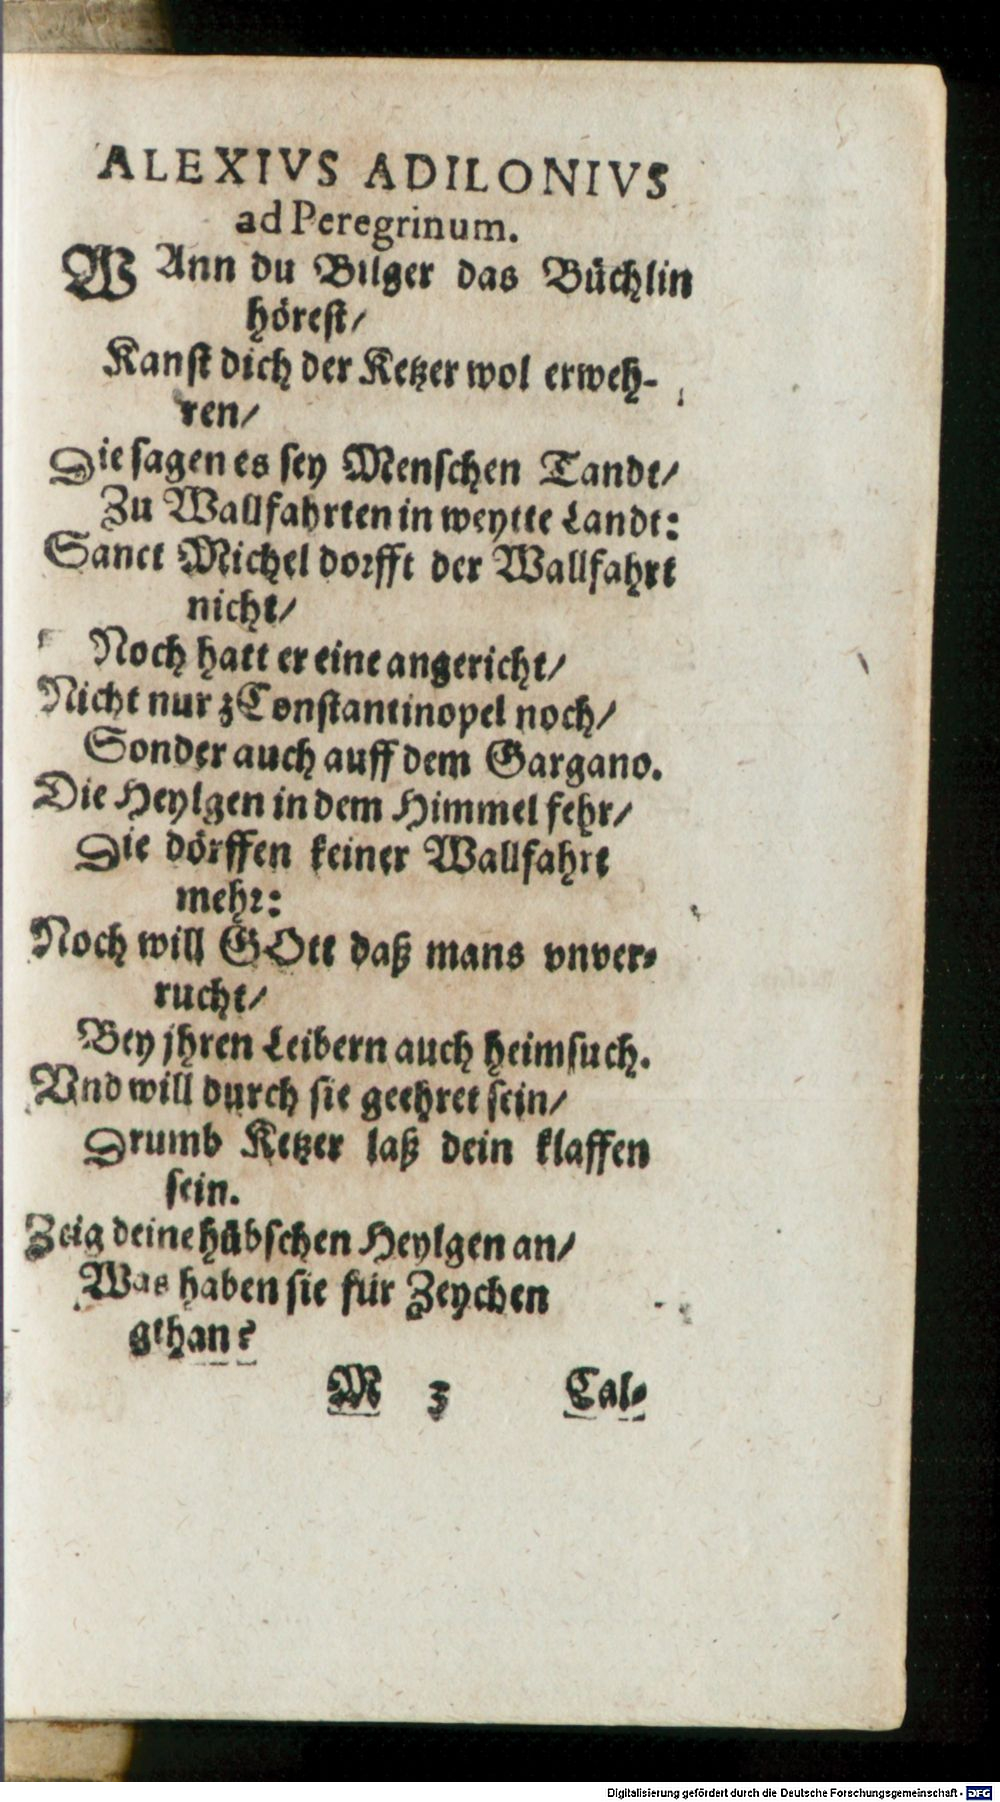 ALEXIVS ADILONIVS
ad Peregrinum.
WAnn du Bilger das Büchlin
hörest/
Kanst dich der Ketzer wol erweh-
ren/
Die sagen es sey Menschen Tandt/
Zu Wallfahrten in weytte Landt:
Sanct Michel dorfft der Wallfahrt
nicht/
Noch hatt er eine angericht/
Nicht nur zConstantinopel noch/
Sonder auch auff dem Gargano.
Die Heylgen in dem Himmel fehr/
Die dörffen keiner Wallfahrt
mehr:
Noch will GOtt daß mans vnver-
rucht/
Bey jhren Leibern auch heimsuch.
Vnd will durch sie geehret sein/
Drumb Ketzer laß dein klaffen
sein.
Zeig deine hübschen Heylgen an/
Was haben sie für Zeychen
gethan?
M 3 Cal-
Digitalisierung gefördert durch die Deutsche Forschungsgemeinschaft - DFG